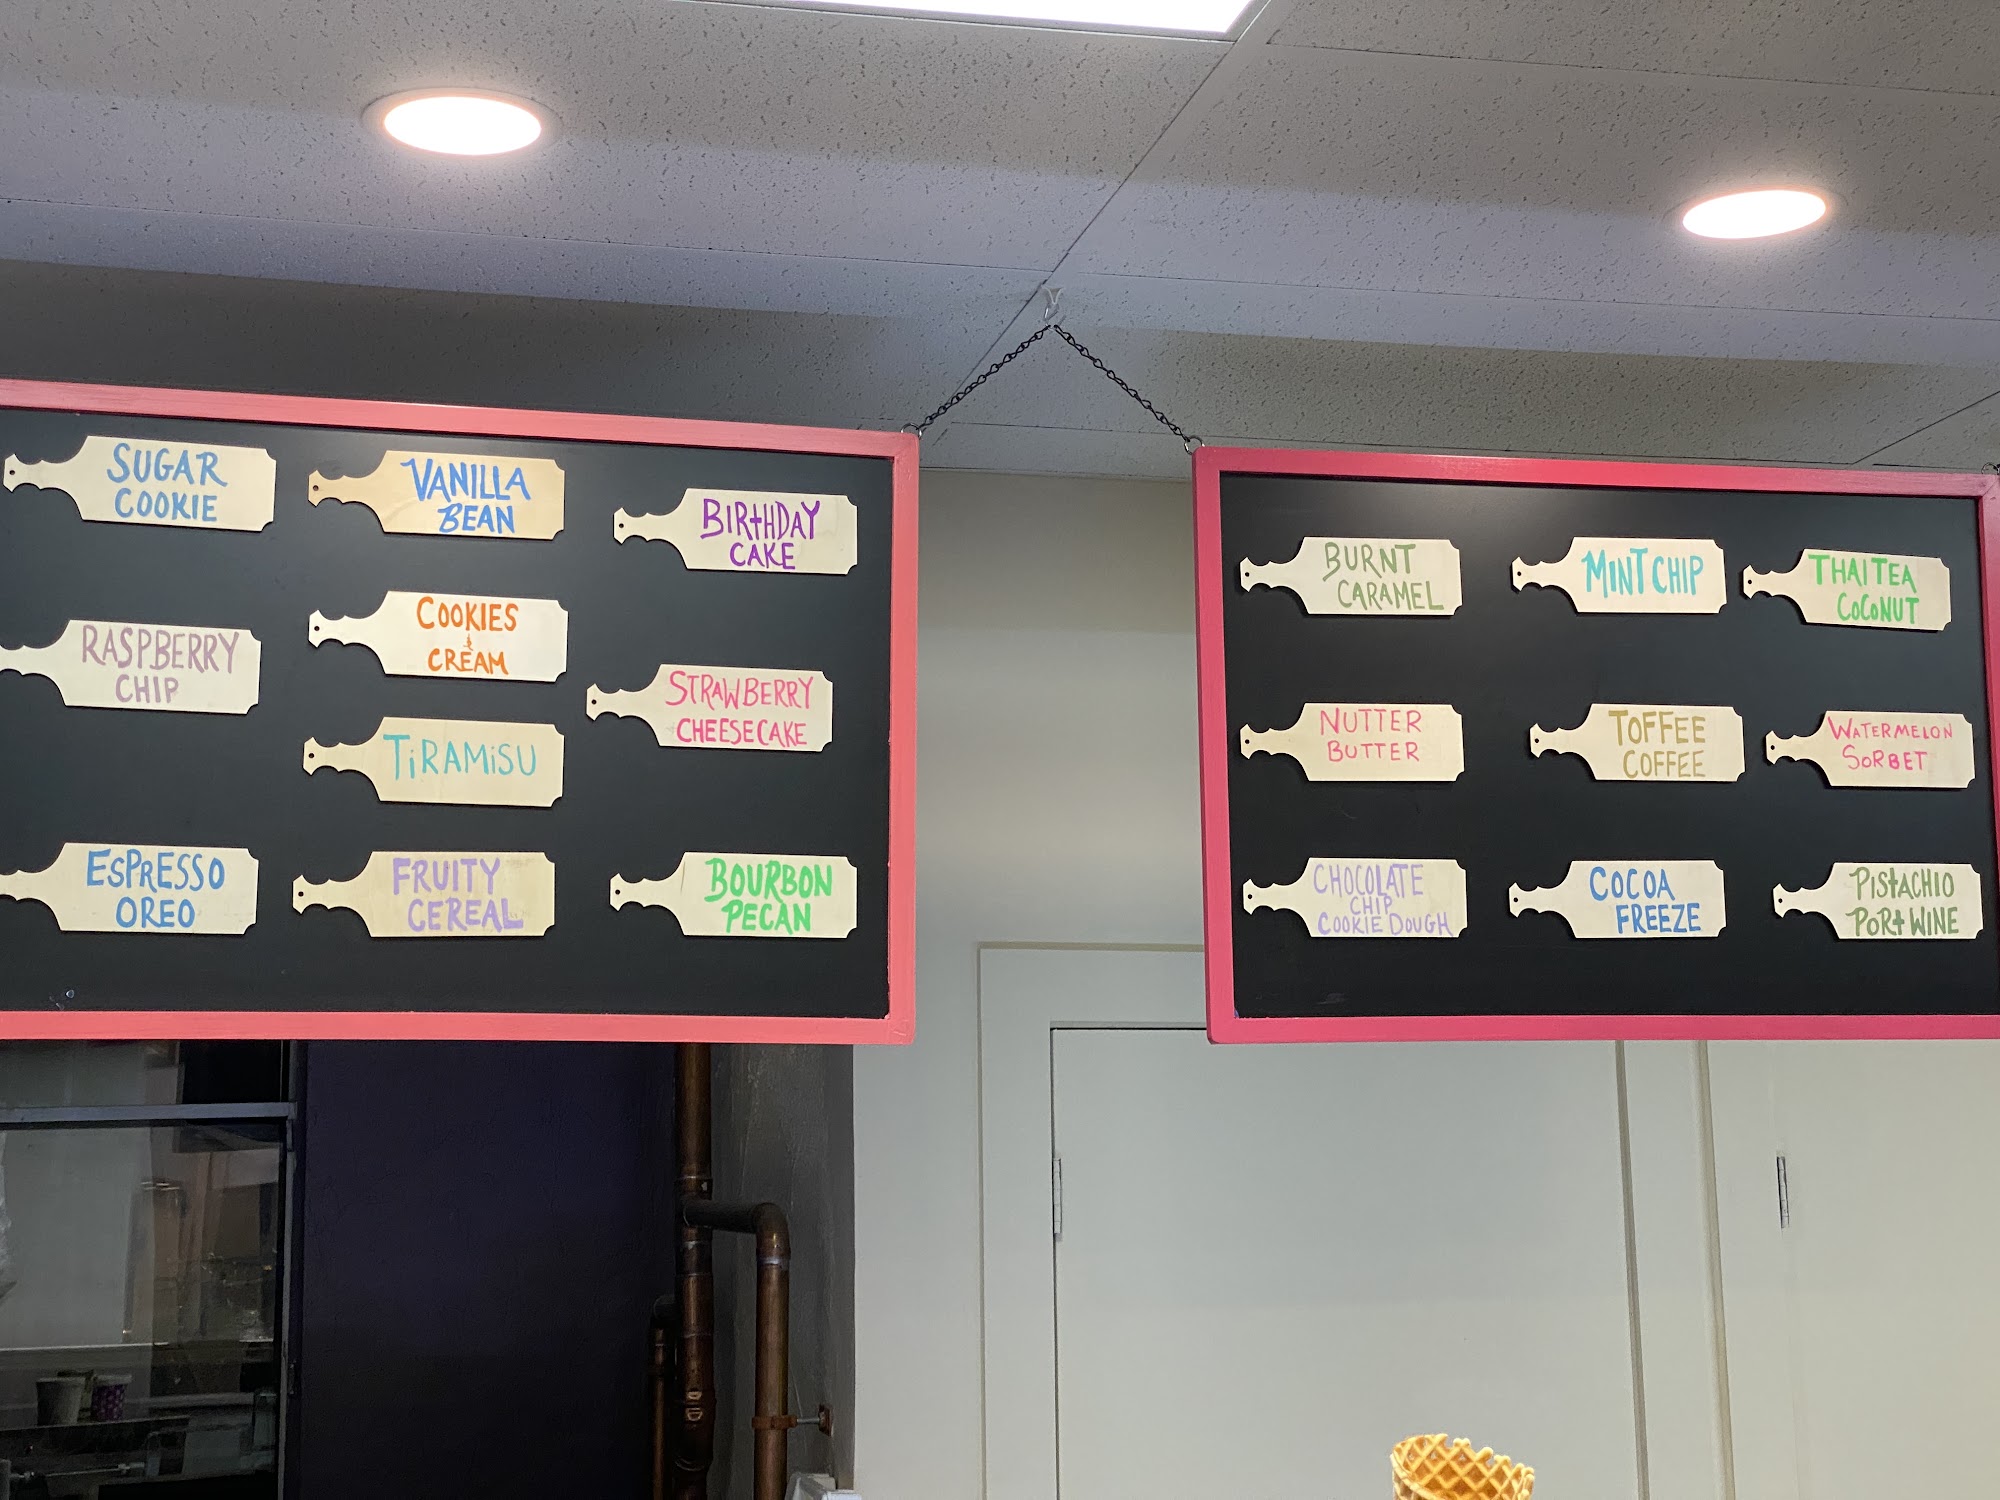 SUGAR
COOKIE
VANILLA
BEAN
BIRTHDAY
CAKE
RASPBERRY
CHIP
COOKIES
&
CREAM
STRAWBERRY
CHEESECAKE
TIRAMISU
ESPRESSO
OREO
FRUITY
CEREAL
BOURBON
PECAN
BURNT
CARAMEL
MINT CHIP
THAI TEA
COCONUT
NUTTER
BUTTER
TOFFEE
COFFEE
WATERMELON
SORBET
CHOCOLATE
CHIP
COOKIE DOUGH
COCOA
FREEZE
PISTACHIO
PORT WINE